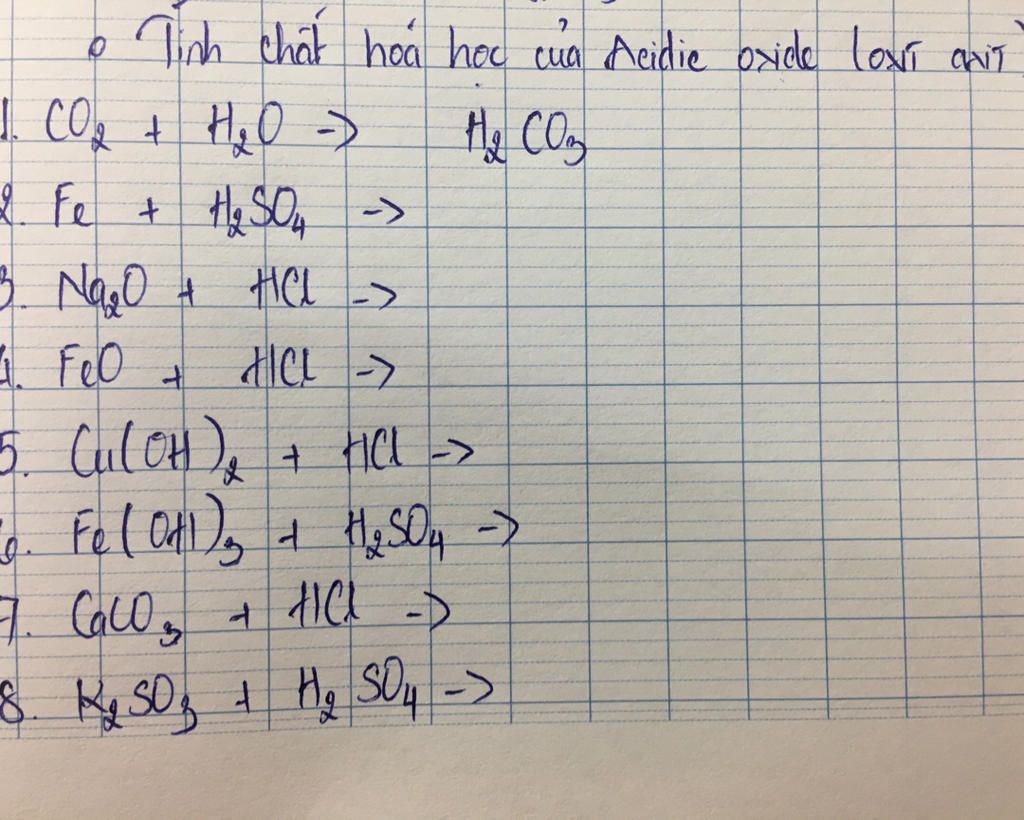 o Tính chất hoá học của Acidic oxide (oxit axit)
1. CO₂ + H₂O -> H₂CO₃
2. Fe + H₂SO₄ ->
3. Na₂O + HCl ->
4. FeO + HCl ->
5. Cu(OH)₂ + HCl ->
6. Fe(OH)₃ + H₂SO₄ ->
7. CaCO₃ + HCl ->
8. K₂SO₃ + H₂SO₄ ->